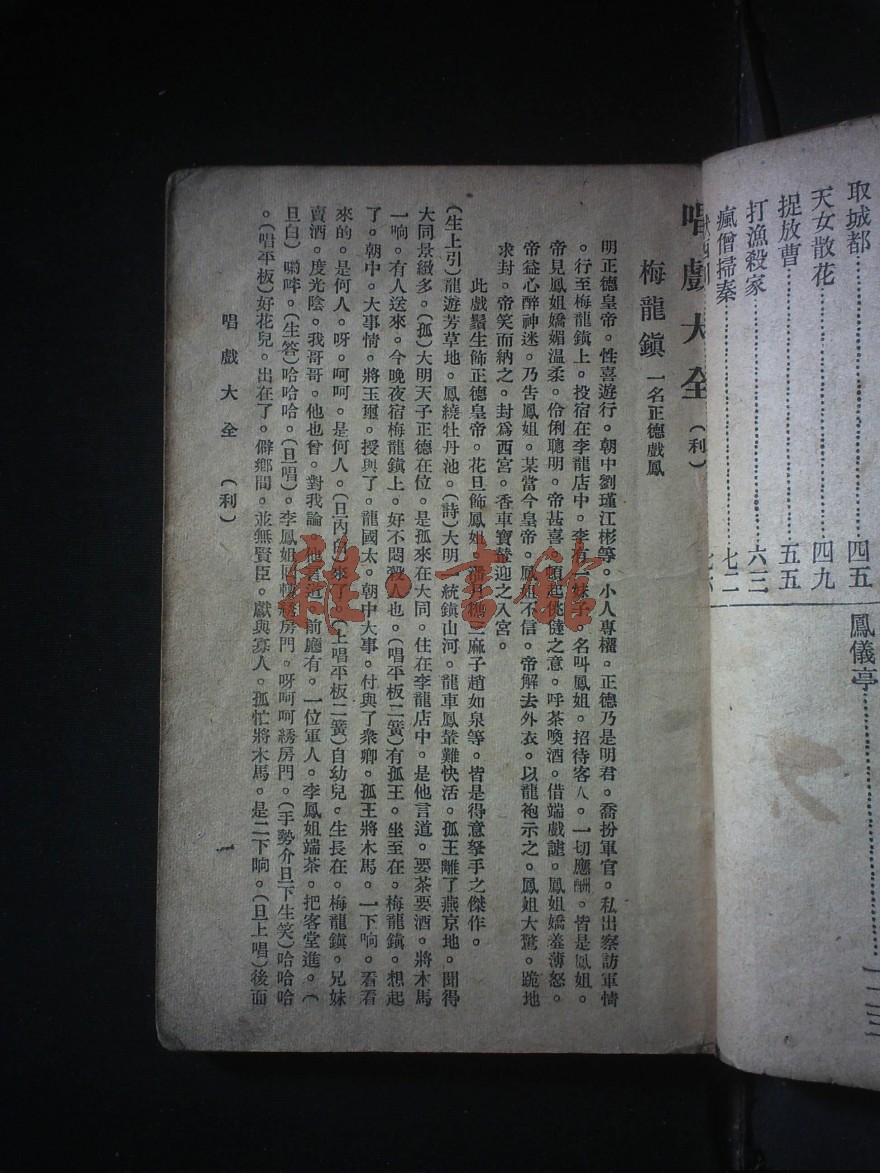 取城都 四五
天女散花 四九
捉放曹 五五
打漁殺家 六三
瘋僧掃秦 七二
鳳儀亭
唱戲大全(利)
梅龍鎭 一名正德戲鳳
明正德皇帝。性喜遊行。朝中劉瑾江彬等。小人專權。正德乃是明君。喬扮軍官。私出察訪軍情
。行至梅龍鎭上。投宿在李龍店中。李有一妹子。名叫鳳姐。招待客人。一切應酬。皆是鳳姐。
帝見鳳姐嬌媚溫柔。伶俐聰明。帝甚喜。頓起佻㒓之意。呼茶喚酒。借端戲謔。鳳姐嬌羞薄怒。
帝益心醉神迷。乃吿鳳姐。某當今皇帝。鳳姐不信。帝解去外衣。以龍袍示之。鳳姐大驚。跪地
求封。帝笑而納之。封爲西宮。香車寶輦迎之入宮。
此戲鬚生飾正德皇帝。花旦飾鳳姐。潘月樵三麻子趙如泉等。皆是得意拏手之傑作。
(生上引)龍遊芳草地。鳳繞牡丹池。(詩)大明一統鎭山河。龍車鳳輦難快活。孤王離了燕京地。聞得
大同景緻多。(孤)大明天子正德在位。是孤來在大同。住在李龍店中。是他言道。要茶要酒。將木馬
一响。有人送來。今晚夜宿梅龍鎭上。好不悶殺人也。(唱平板二簧)有孤王。坐至在。梅龍鎭。想起
了。朝中。大事情。將玉璽。授與了。龍國太。朝中大事。付與了衆卿。孤王將木馬。一下响。看看
來的。是何人。呀。呵呵。是何人。(旦內白)來了。(上唱平板二簧)自幼兒。生長在。梅龍鎭。兄妹
賣酒。度光陰。我哥哥。他也曾。對我論。他言道。前廳有。一位軍人。李鳳姐端茶。把客堂進。(
旦白)啲哖。(生答)哈哈哈。(旦唱)。李鳳姐回轉綉房門。呀呵呵綉房門。(手勢介旦下生笑)哈哈哈
。(唱平板)好花兒。出在了。僻鄉間。並無賢臣。獻與寡人。孤忙將木馬。是二下响。(旦上唱)後面
唱戲大全 (利)
龍の書館